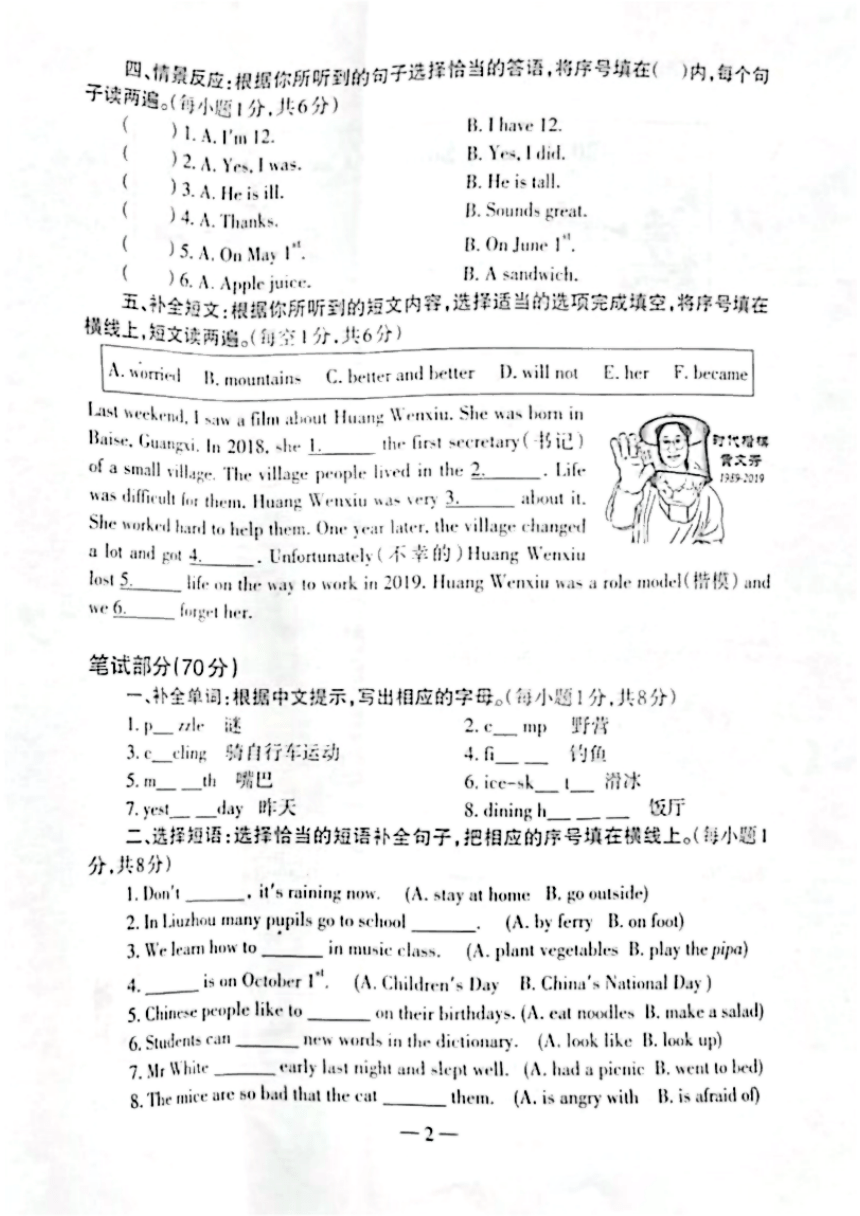 四、情景反应:根据你所听到的句子选择恰当的答语,将序号填在( )内,每个句
子读两遍。(每小题1分,共6分)
( ) 1. A. I'm 12. B. I have 12.
( ) 2. A. Yes, I was. B. Yes, I did.
( ) 3. A. He is ill. B. He is tall.
( ) 4. A. Thanks. B. Sounds great.
( ) 5. A. On May 1st. B. On June 1st.
( ) 6. A. Apple juice. B. A sandwich.
五、补全短文:根据你所听到的短文内容,选择适当的选项完成填空,将序号填在
横线上,短文读两遍。(每空1分,共6分)
A. worried B. mountains C. better and better D. will not E. her F. became
Last weekend, I saw a film about Huang Wenxiu. She was born in
Baise, Guangxi. In 2018, she 1.______ the first secretary(书记)
of a small village. The village people lived in the 2.______. Life
was difficult for them. Huang Wenxiu was very 3.______ about it.
She worked hard to help them. One year later, the village changed
a lot and got 4.______. Unfortunately(不幸的)Huang Wenxiu
lost 5.______ life on the way to work in 2019. Huang Wenxiu was a role model(楷模) and
we 6.______ forget her.
时代楷模
黄文秀
1989-2019
笔试部分(70分)
一、补全单词:根据中文提示,写出相应的字母。(每小题1分,共8分)
1. p__zzle 谜 2. c__mp 野营
3. c__cling 骑自行车运动 4. fi__ __ 钓鱼
5. m__ __th 嘴巴 6. ice-sk__t__ 滑冰
7. yest__ __day 昨天 8. dining h__ __ __ 饭厅
二、选择短语:选择恰当的短语补全句子,把相应的序号填在横线上。(每小题1
分,共8分)
1. Don't ______, it's raining now. (A. stay at home B. go outside)
2. In Liuzhou many pupils go to school ______. (A. by ferry B. on foot)
3. We learn how to ______ in music class. (A. plant vegetables B. play the pipa)
4. ______ is on October 1st. (A. Children's Day B. China's National Day )
5. Chinese people like to ______ on their birthdays. (A. eat noodles B. make a salad)
6. Students can ______ new words in the dictionary. (A. look like B. look up)
7. Mr White ______ early last night and slept well. (A. had a picnic B. went to bed)
8. The mice are so bad that the cat ______ them. (A. is angry with B. is afraid of)
—2—